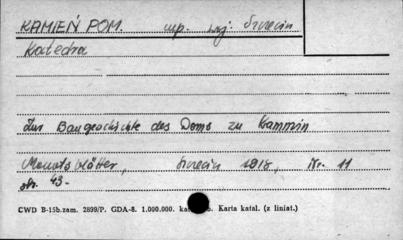 KAMIEŃ POM. woj. Szczecin
Katedra
Zur Baugeschichte des Doms zu Kammin
Monatsblätter, Szczecin 1918, Nr. 11
str. 43-
CWD B-15b.zam. 2899/P. GDA-8. 1.000.000. Karta katal. (z liniat.)